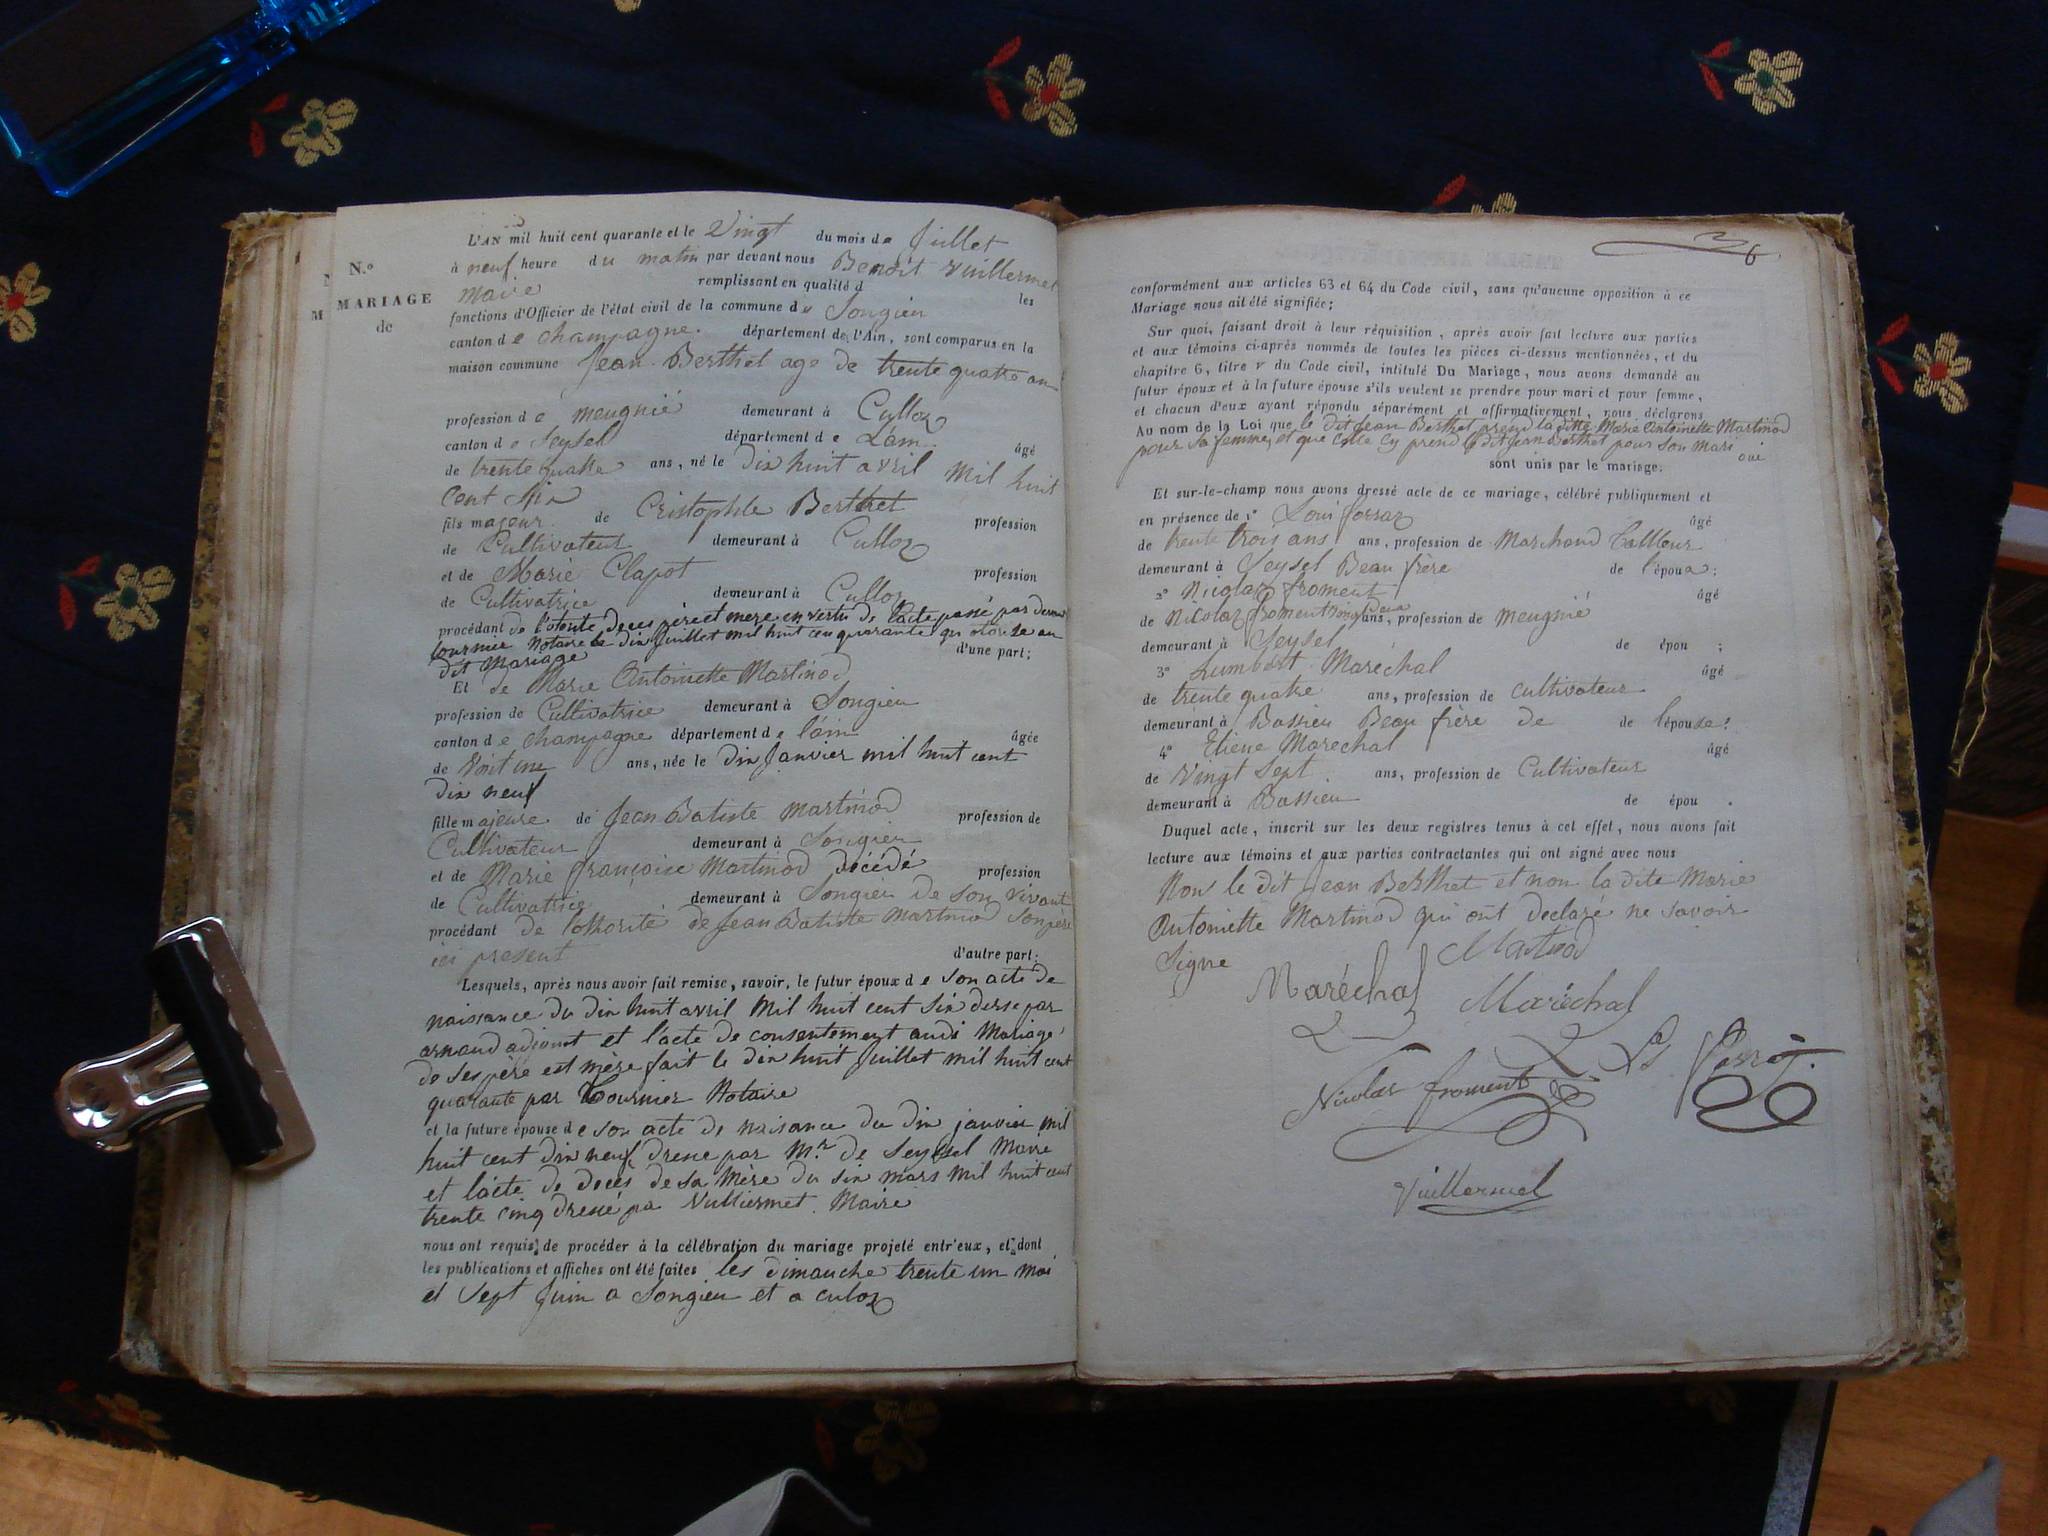 N.º
MARIAGE
de
L'AN mil huit cent quarante et le Vingt du mois de Juillet
à neuf heure du matin par devant nous Benoit Vuillermet
maire remplissant en qualité d les
fonctions d'Officier de l'état civil de la commune de Songieu
canton de champagne. département de l'Ain, sont comparus en la
maison commune Jean Berthet age de trente quatre an
profession de meugnié demeurant à Culloz
canton de Seysel département de L'ain âgé
de trente quatre ans, né le dix huit avril Mil huit
Cent Six
fils majeur de Cristophle Berthet profession
de Cultivateur demeurant à Culloz
et de Marie Clapot profession
de Cultivatrice demeurant à Culloz
procédant de l'otorité de ces père et mere en vertu de l'acte passé par devant
tournier Notaire le dix Juillet mil huit cen quarante qui otorise au
dit Mariage d'une part;
Et de Marie Antoinette Martinod
profession de Cultivatrice demeurant à Songieu
canton de champagne département de l'ain âgée
de Vint une ans, née le dix Janvier mil huit cent
dix neuf
fille majeure de Jean Batiste Martinod profession de
Cultivateur demeurant à Songieu
et de Marie françoise Martinod décédé profession
de Cultivatrice demeurant à Songieu de son vivant
procédant de lothorité de Jean Batiste Martinod son père
ici present d'autre part;
Lesquels, après nous avoir fait remise, savoir, le futur époux de son acte de
naissance du dix huit avril Mil huit cent six dersse par
arnaud adjoint et l'acte de consentement audi Mariage
de ses père est mère fait le dix huit Juillet mil huit cent
quarante par Tournier Notaire
et la future épouse de son acte de naisance du dix janvier mil
huit cent dix neuf dressé par Mr de Seyssel Maire
et l'acte de deces de sa Mère du six mars Mil huit cent
trente cinq dressé pa Vulliermet Maire
nous ont requis de procéder à la célébration du mariage projeté entr'eux, et dont
les publications et affiches ont été faites les dimanche trente un mai
et Sept Juin a Songieu et a culoz
6
conformément aux articles 63 et 64 du Code civil, sans qu'aucune opposition à ce
Mariage nous ait été signifiée;
Sur quoi, faisant droit à leur réquisition, après avoir fait lecture aux parties
et aux témoins ci-après nommés de toutes les pièces ci-dessus mentionnées, et du
chapitre 6, titre v du Code civil, intitulé Du Mariage, nous avons demandé au
futur époux et à la future épouse s'ils veulent se prendre pour mari et pour femme,
et chacun d'eux ayant répondu séparément et affirmativement, nous déclarons
Au nom de la Loi que le dit Jean Berthet prend la ditte Marie Antoinette Martinod
pour sa femme, et que celle cy prend le dit Jean Berthet pour son mari oui
sont unis par le mariage.
Et sur-le-champ nous avons dressé acte de ce mariage, célébré publiquement et
en présence de 1º Loui forraz âgé
de trente trois ans ans, profession de Marchand Tailleur
demeurant à Seysel Beau frère de l'époux;
2º Nicolas froment âgé
de Nicolas froment vingt deux ans, profession de meugnié
demeurant à Seysel de épou ;
3º Humbert Maréchal âgé
de trente quatre ans, profession de cultivateur
demeurant à Bassieu Beau frère de de l'épouse;
4º Etiene Marechal âgé
de Vingt Sept ans, profession de Cultivateur
demeurant à Bassieu de épou .
Duquel acte, inscrit sur les deux registres tenus à cet effet, nous avons fait
lecture aux témoins et aux parties contractantes qui ont signé avec nous
Non le dit Jean Berthet et non la dite Marie
Antoinette Martinod qui ont declaré ne savoir
Signe Martinod
Maréchal Maréchal
Nicolas froment Ls
Vuillermet